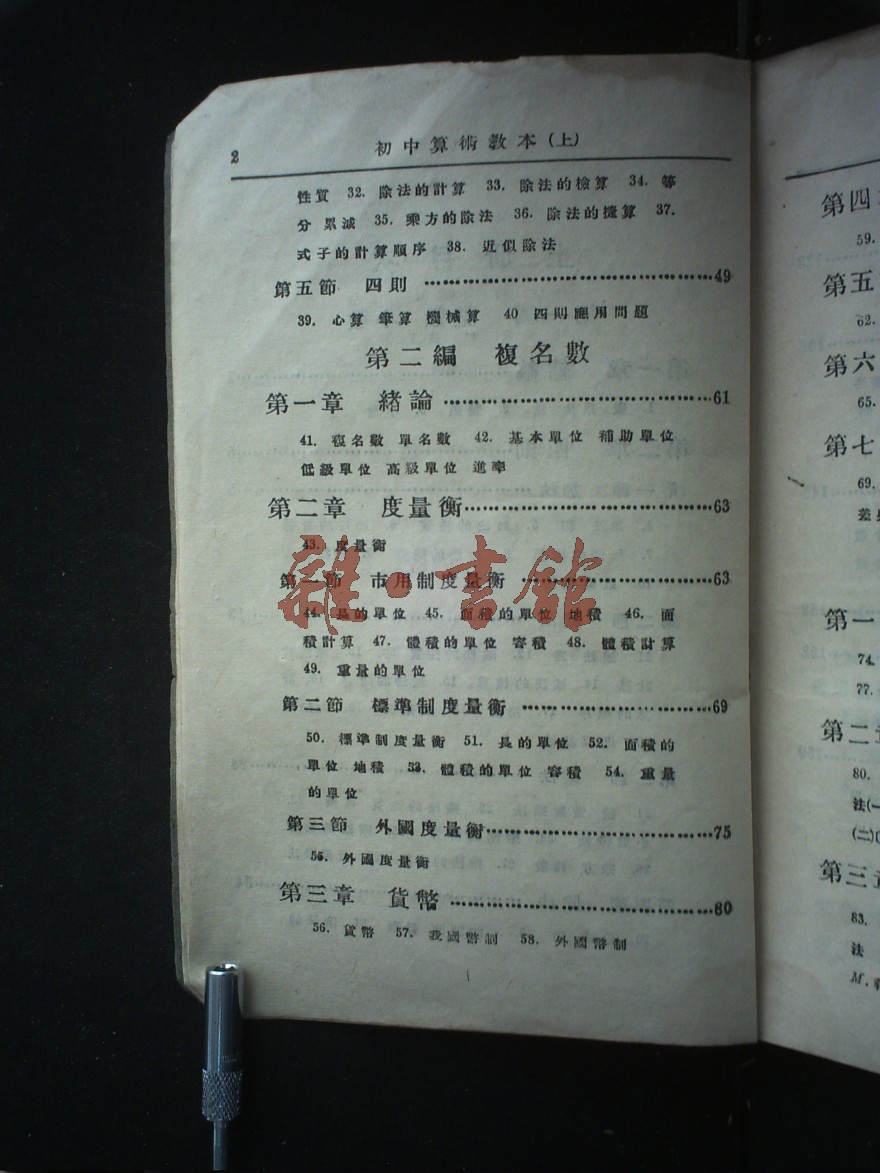 2
初中算術教本(上)
性質 32. 除法的計算 33. 除法的檢算 34. 等
分 累減 35. 乘方的除法 36. 除法的捷算 37.
式子的計算順序 38. 近似除法
第五節 四則 ……………………………………49
39. 心算 筆算 機械算 40 四則應用問題
第二編 複名數
第一章 緒論 ……………………………………61
41. 複名數 單名數 42. 基本單位 補助單位
低級單位 高級單位 進率
第二章 度量衡……………………………………63
43. 度量衡
第一節 市用制度量衡 …………………………63
44. 長的單位 45. 面積的單位 地積 46. 面
積計算 47. 體積的單位 容積 48. 體積計算
49. 重量的單位
第二節 標準制度量衡 …………………………69
50. 標準制度量衡 51. 長的單位 52. 面積的
單位 地積 53. 體積的單位 容積 54. 重量
的單位
第三節 外國度量衡………………………………75
55. 外國度量衡
第三章 貨幣 ……………………………………80
56. 貨幣 57. 我國幣制 58. 外國幣制
雜·書館
第四
59.
第五
62.
第六
65.
第七
69.
第一
74.
77.
第二
80.
法(一
(二)(
第三
83.
法
M.